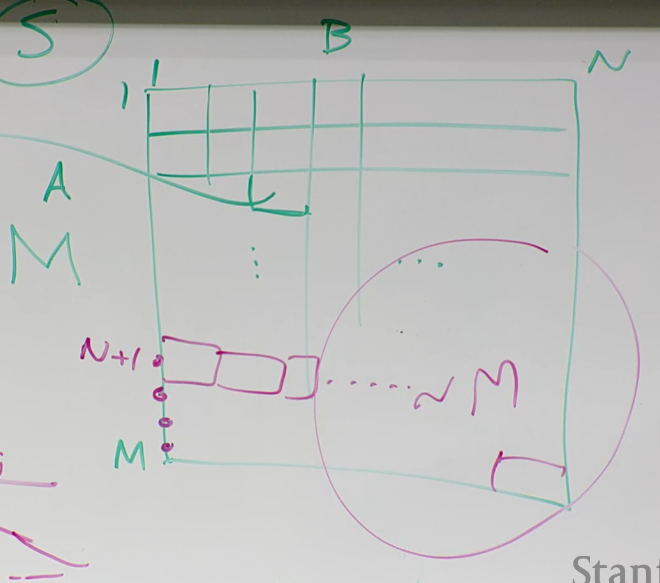 S
B
1
N
1
A
M
N+1
~ M
M
Stan